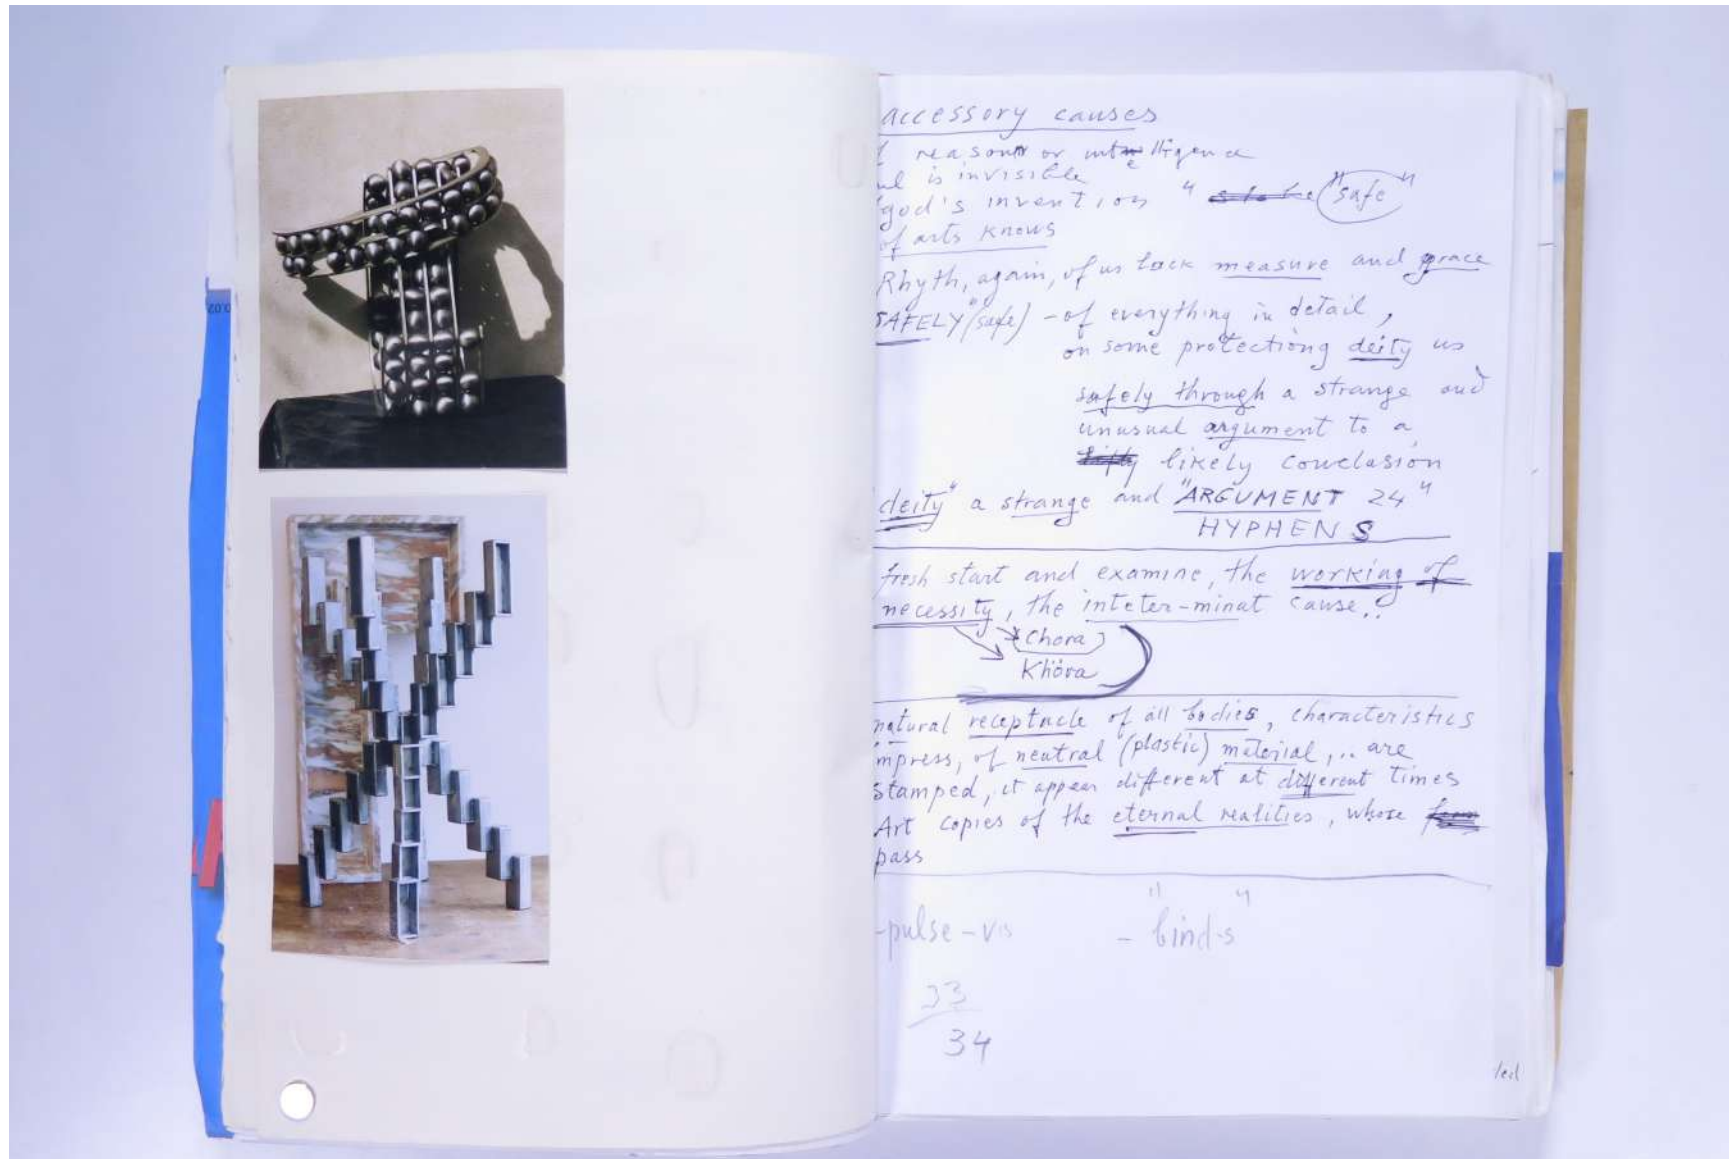 accessory causes
reason or intelligence
is invisible
god's invention " "safe"
of arts knows
Rhyth, again, of us lack measure and grace
SAFELY "(safe) - of everything in detail,
on some protectiong deity us
safely through a strange and
unusual argument to a
likely conclusion
deity" a strange and "ARGUMENT 24"
HYPHENS
fresh start and examine, the working of
necessity, the inteter-minat cause..
(Chora)
Khöra
natural receptacle of all bodies, characteristics
mpress, of neutral (plastic) material,.. are
stamped, it appear different at different times
Art copies of the eternal realities, whose
pass
-pulse-vis - "bind-s"
33
34